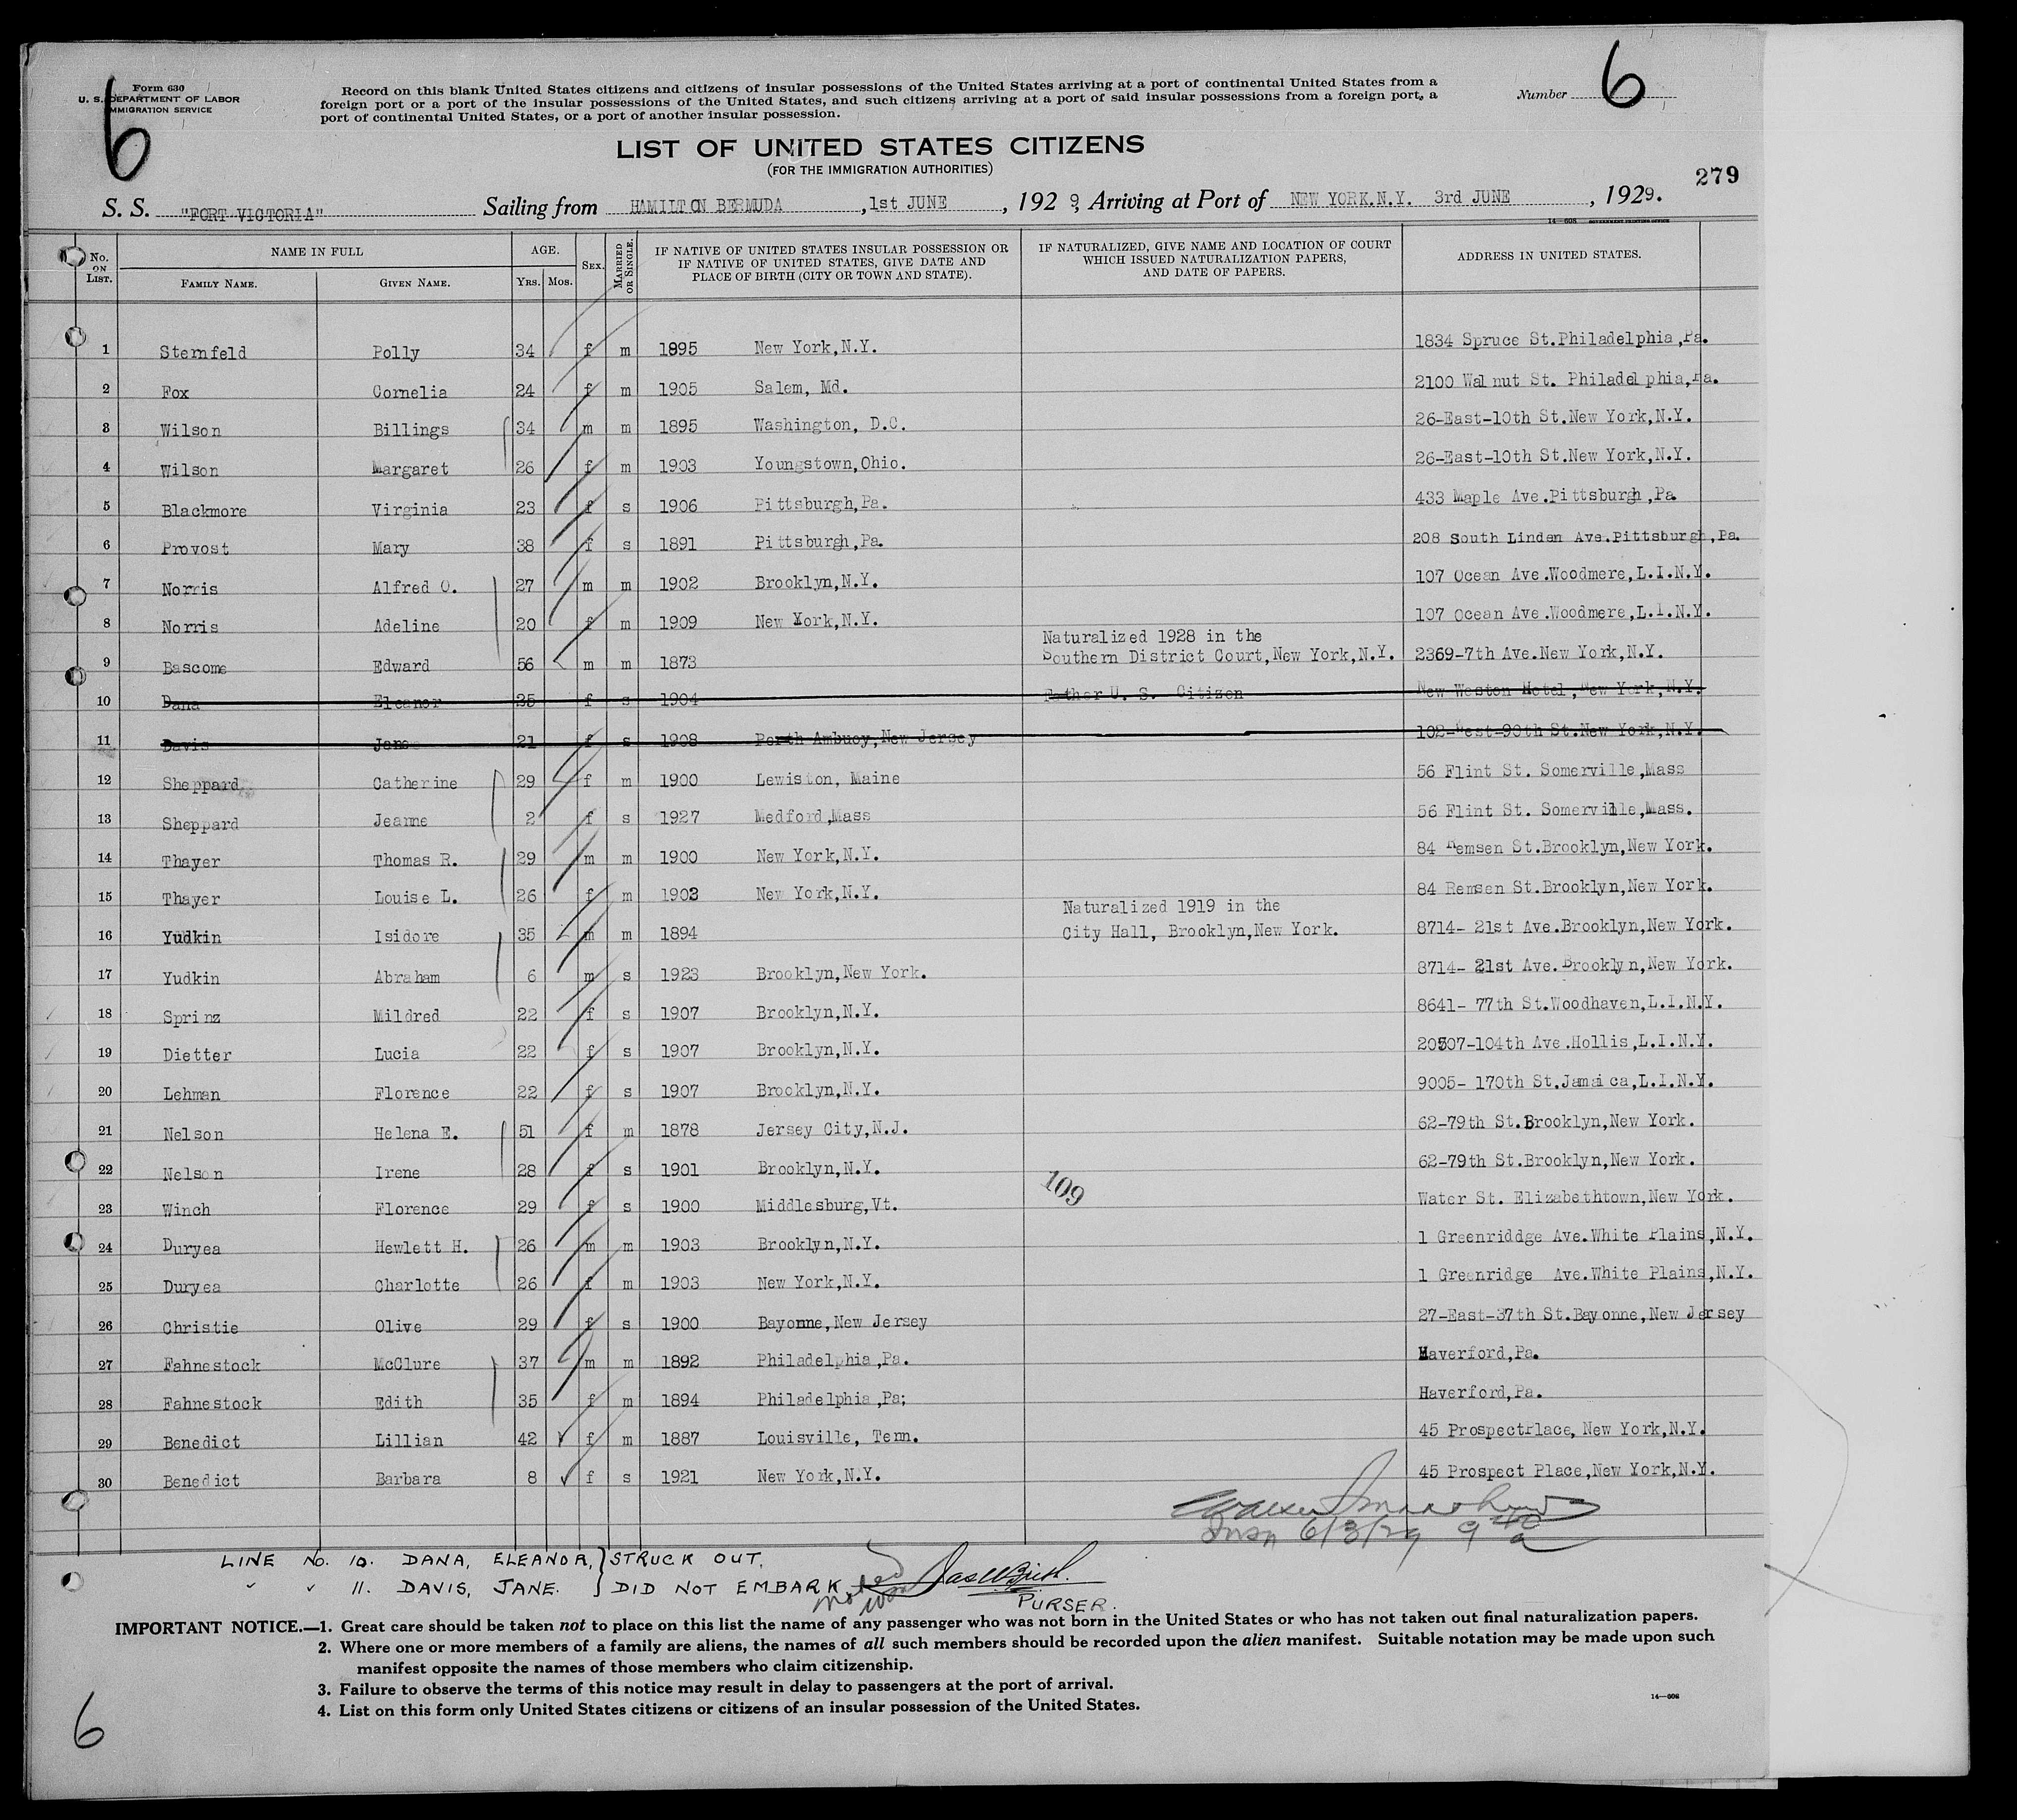 6
Form 630
U. S. DEPARTMENT OF LABOR
IMMIGRATION SERVICE
Record on this blank United States citizens and citizens of insular possessions of the United States arriving at a port of continental United States from a
foreign port or a port of the insular possessions of the United States, and such citizens arriving at a port of said insular possessions from a foreign port, a
port of continental United States, or a port of another insular possession.
Number 6
LIST OF UNITED STATES CITIZENS
(FOR THE IMMIGRATION AUTHORITIES)
279
S. S. "FORT VICTORIA" Sailing from HAMILTON BERMUDA, 1st JUNE, 1929, Arriving at Port of NEW YORK.N.Y. 3rd JUNE, 1929.
14—608 GOVERNMENT PRINTING OFFICE
No. ON LIST. NAME IN FULL FAMILY NAME. GIVEN NAME. AGE. YRS. MOS. SEX. MARRIED OR SINGLE. IF NATIVE OF UNITED STATES INSULAR POSSESSION OR IF NATIVE OF UNITED STATES, GIVE DATE AND PLACE OF BIRTH (CITY OR TOWN AND STATE). IF NATURALIZED, GIVE NAME AND LOCATION OF COURT WHICH ISSUED NATURALIZATION PAPERS, AND DATE OF PAPERS. ADDRESS IN UNITED STATES.
1 Sternfeld Polly 34 f m 1895 New York,N.Y. 1834 Spruce St.Philadelphia,Pa.
2 Fox Cornelia 24 f m 1905 Salem, Md. 2100 Walnut St. Philadelphia,Pa.
3 Wilson Billings 34 m m 1895 Washington, D.C. 26-East-10th St.New York,N.Y.
4 Wilson Margaret 26 f m 1903 Youngstown,Ohio. 26-East-10th St.New York,N.Y.
5 Blackmore Virginia 23 f s 1906 Pittsburgh,Pa. 433 Maple Ave.Pittsburgh,Pa
6 Provost Mary 38 f s 1891 Pittsburgh,Pa. 208 South Linden Ave.Pittsburgh,Pa.
7 Norris Alfred O. 27 m m 1902 Brooklyn,N.Y. 107 Ocean Ave.Woodmere,L.I.N.Y.
8 Norris Adeline 20 f m 1909 New York,N.Y. 107 Ocean Ave.Woodmere,L.I.N.Y.
9 Bascome Edward 56 m m 1873 Naturalized 1928 in the Southern District Court,New York,N.Y. 2369-7th Ave.New York,N.Y.
10 Dana Eleanor 25 f s 1904 Father U. S. Citizen New Weston Hotel,New York,N.Y.
11 Davis Jane 21 f s 1908 Perth Ambuoy,New Jersey 102-West-90th St.New York,N.Y.
12 Sheppard Catherine 29 f m 1900 Lewiston, Maine 56 Flint St. Somerville,Mass
13 Sheppard Jeanne 2 f s 1927 Medford,Mass 56 Flint St. Somerville,Mass.
14 Thayer Thomas R. 29 m m 1900 New York,N.Y. 84 Remsen St.Brooklyn,New York.
15 Thayer Louise L. 26 f m 1903 New York,N.Y. 84 Remsen St.Brooklyn,New York.
16 Yudkin Isidore 35 m m 1894 Naturalized 1919 in the City Hall, Brooklyn,New York. 8714- 21st Ave.Brooklyn,New York.
17 Yudkin Abraham 6 m s 1923 Brooklyn,New York. 8714- 21st Ave.Brooklyn,New York.
18 Sprinz Mildred 22 f s 1907 Brooklyn,N.Y. 8641- 77th St.Woodhaven,L.I.N.Y.
19 Dietter Lucia 22 f s 1907 Brooklyn,N.Y. 20507-104th Ave.Hollis,L.I.N.Y.
20 Lehman Florence 22 f s 1907 Brooklyn,N.Y. 9005- 170th St.Jamaica,L.I.N.Y.
21 Nelson Helena E. 51 f m 1878 Jersey City,N.J. 62-79th St.Brooklyn,New York.
22 Nelson Irene 28 f s 1901 Brooklyn,N.Y. 62-79th St.Brooklyn,New York.
109
23 Winch Florence 29 f s 1900 Middlesburg,Vt. Water St. Elizabethtown,New York.
24 Duryea Hewlett H. 26 m m 1903 Brooklyn,N.Y. 1 Greenriddge Ave.White Plains,N.Y.
25 Duryea Charlotte 26 f m 1903 New York,N.Y. 1 Greenridge Ave.White Plains,N.Y.
26 Christie Olive 29 f s 1900 Bayonne,New Jersey 27-East-37th St.Bayonne,New Jersey
27 Fahnestock McClure 37 m m 1892 Philadelphia,Pa. Haverford,Pa.
28 Fahnestock Edith 35 f m 1894 Philadelphia,Pa; Haverford,Pa.
29 Benedict Lillian 42 f m 1887 Louisville, Tenn. 45 ProspectPlace, New York,N.Y.
30 Benedict Barbara 8 f s 1921 New York,N.Y. 45 Prospect Place,New York,N.Y.
6/3/29 9 40 a
LINE No. 10. DANA, ELEANOR, } STRUCK OUT.
✓ ✓ 11. DAVIS, JANE. } DID NOT EMBARK
PURSER.
IMPORTANT NOTICE.—1. Great care should be taken not to place on this list the name of any passenger who was not born in the United States or who has not taken out final naturalization papers.
2. Where one or more members of a family are aliens, the names of all such members should be recorded upon the alien manifest. Suitable notation may be made upon such
manifest opposite the names of those members who claim citizenship.
3. Failure to observe the terms of this notice may result in delay to passengers at the port of arrival.
4. List on this form only United States citizens or citizens of an insular possession of the United States.
14—608
6